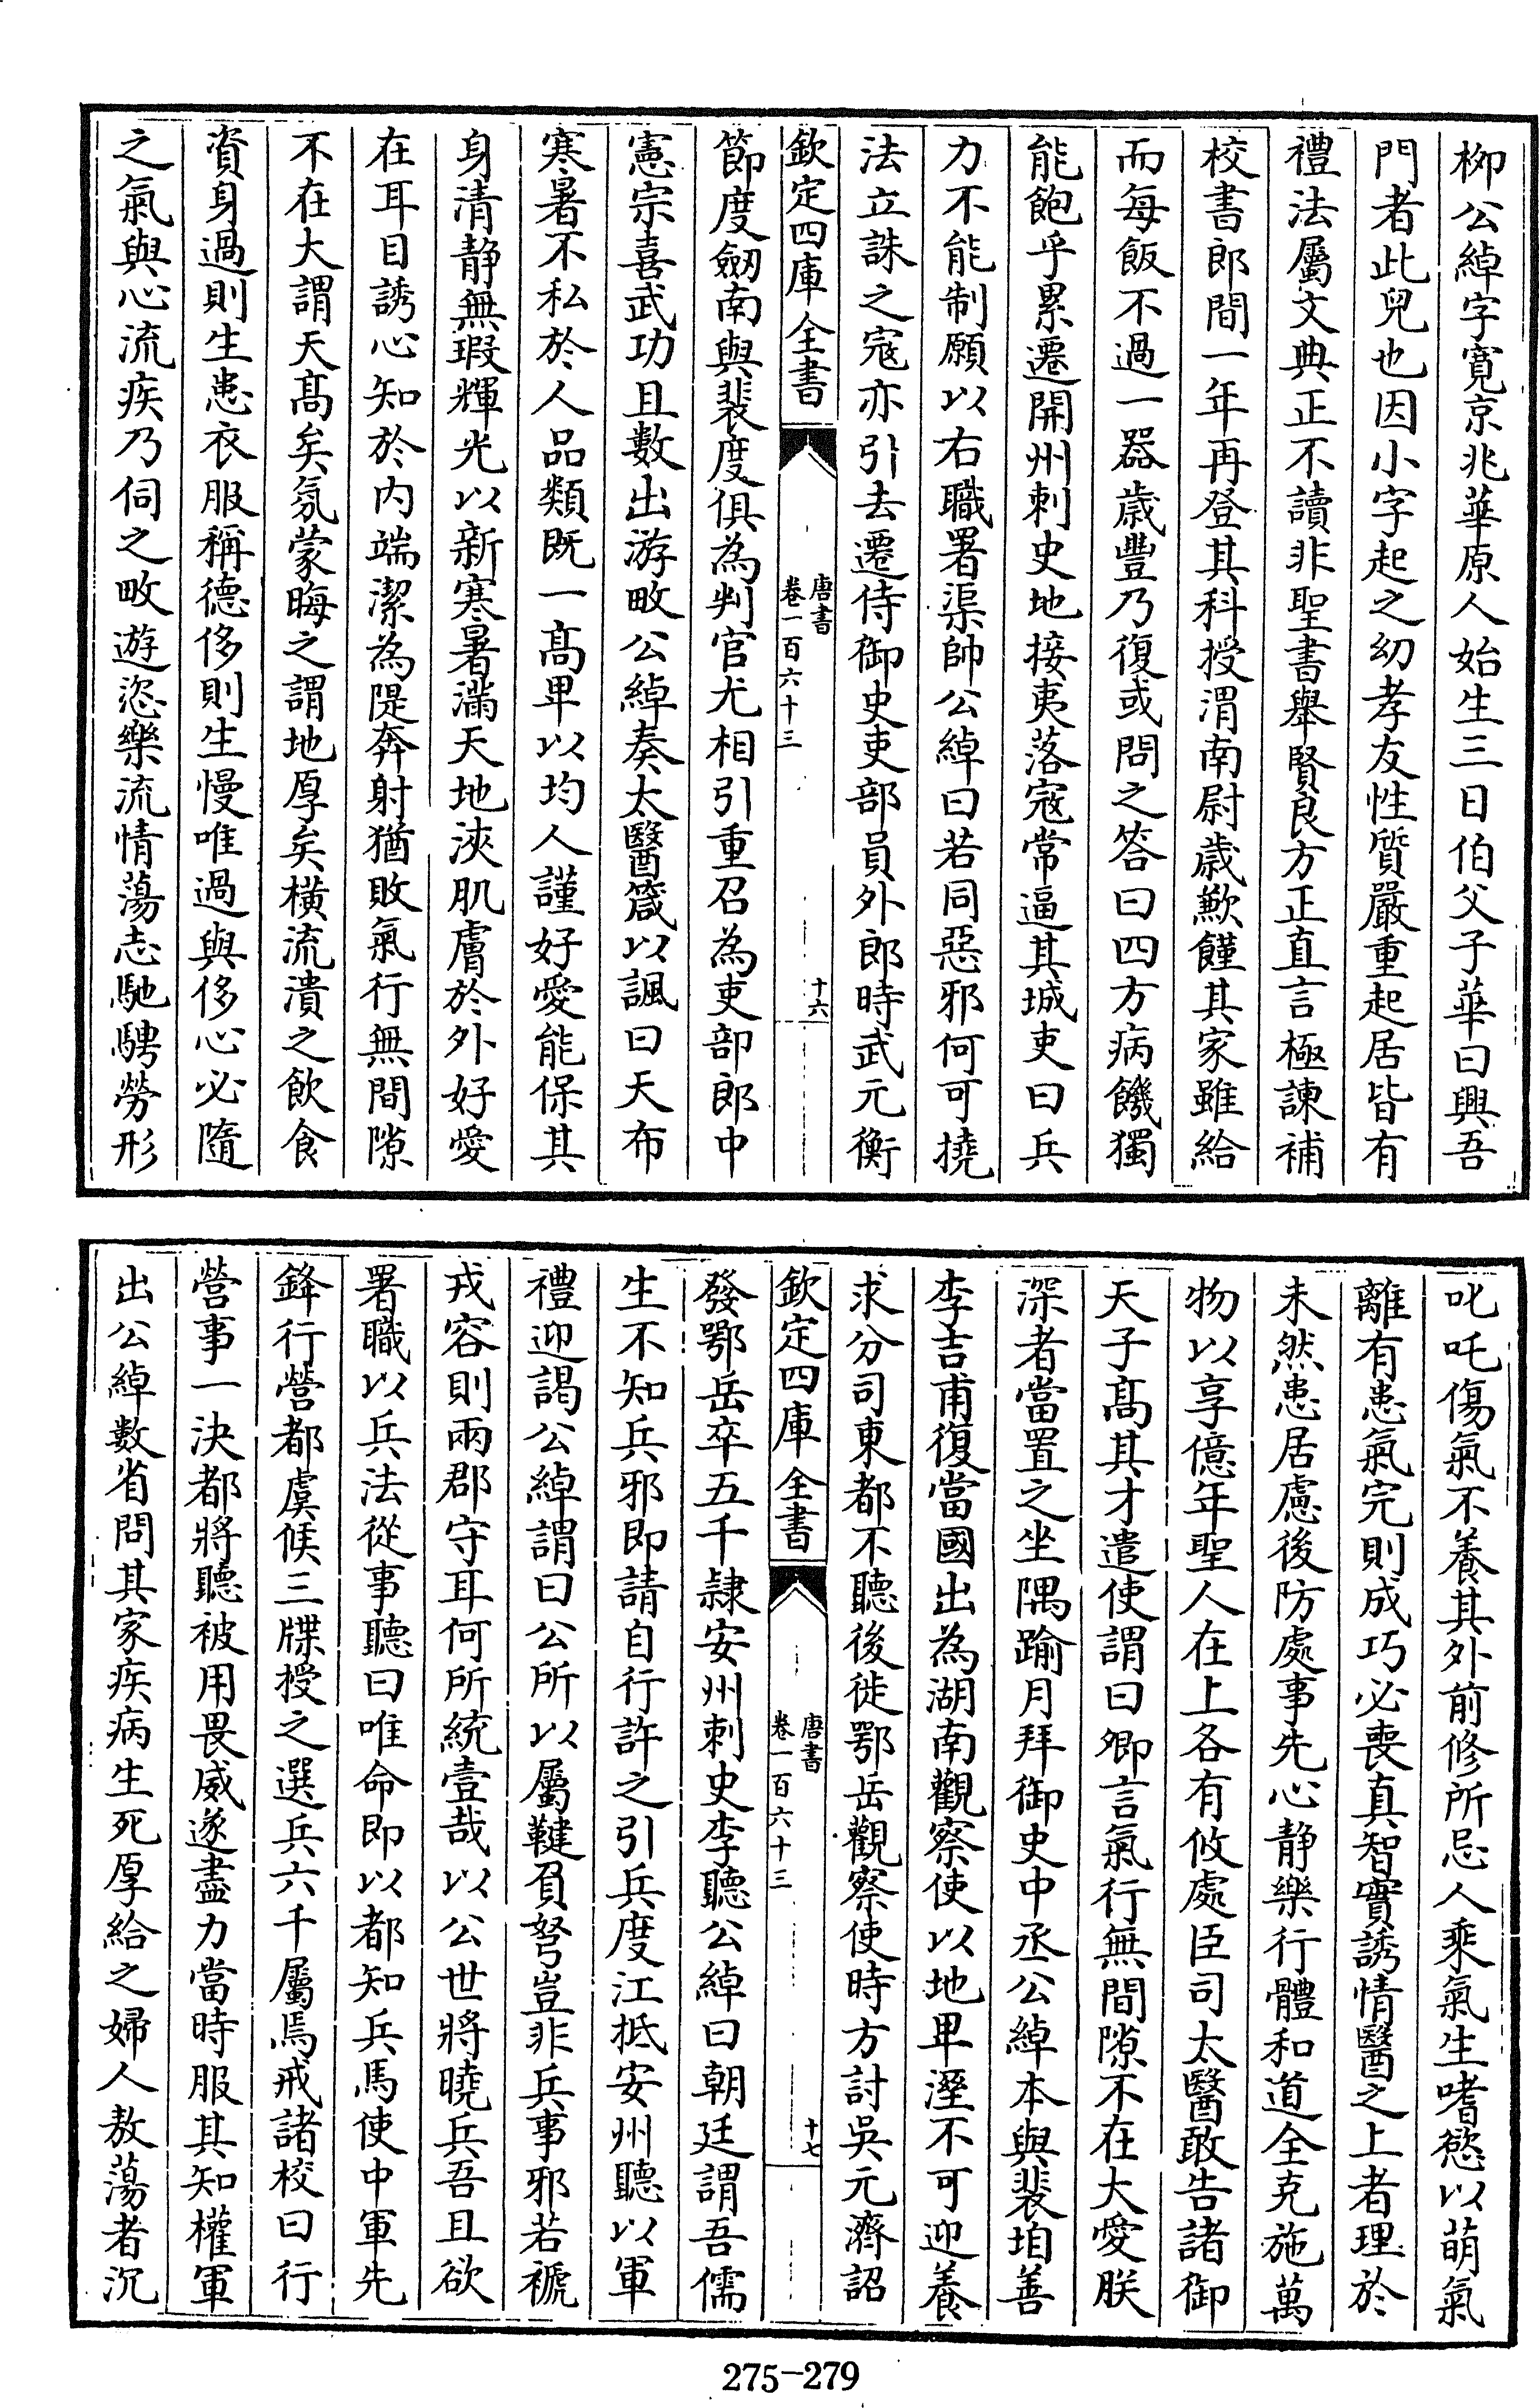 柳公綽字寛京兆華原人始生三日伯父子華曰興吾
門者此兒也因小字起之幼孝友性質嚴重起居皆有
禮法屬文典正不讀非聖書舉賢良方正直言極諫補
校書郎間一年再登其科授渭南尉歲歉饉其家雖給
而每飯不過一器歲豐乃復或問之答曰四方病饑獨
能飽乎累遷開州刺史地接夷落寇常逼其城吏曰兵
力不能制願以右職署渠帥公綽曰若同惡邪何可撓
法立誅之寇亦引去遷侍御史吏部員外郎時武元衡
欽定四庫全書
唐書
卷一百六十三
十六
節度劒南與裴度俱為判官尤相引重召為吏部郎中
憲宗喜武功且數出游畋公綽奏太醫箴以諷曰天布
寒暑不私於人品類既一高卑以均人謹好愛能保其
身清静無瑕輝光以新寒暑滿天地浹肌膚於外好愛
在耳目誘心知於内端潔為隄奔射猶敗氣行無間隙
不在大謂天高矣氛蒙晦之謂地厚矣横流潰之飲食
資身過則生患衣服稱德侈則生慢唯過與侈心必隨
之氣與心流疾乃伺之畋遊恣樂流情蕩志馳騁勞形
叱吒傷氣不養其外前修所忌人乘氣生嗜慾以萌氣
離有患氣完則成巧必喪真智實誘情醫之上者理於
未然患居慮後防處事先心静樂行體和道全克施萬
物以享億年聖人在上各有攸處臣司太醫敢告諸御
天子高其才遣使謂曰卿言氣行無間隙不在大愛朕
深者當置之坐隅踰月拜御史中丞公綽本與裴垍善
李吉甫復當國出為湖南觀察使以地卑溼不可迎養
求分司東都不聽後徙鄂岳觀察使時方討吳元濟詔
欽定四庫全書
唐書
卷一百六十三
十七
發鄂岳卒五千隸安州刺史李聽公綽曰朝廷謂吾儒
生不知兵邪即請自行許之引兵度江抵安州聽以軍
禮迎謁公綽謂曰公所以屬鞬負弩豈非兵事邪若褫
戎容則兩郡守耳何所統壹哉以公世將曉兵吾且欲
署職以兵法從事聽曰唯命即以都知兵馬使中軍先
鋒行營都虞候三牒授之選兵六千屬焉戒諸校曰行
營事一決都將聽被用畏威遂盡力當時服其知權軍
出公綽數省問其家疾病生死厚給之婦人敖蕩者沉
275-279